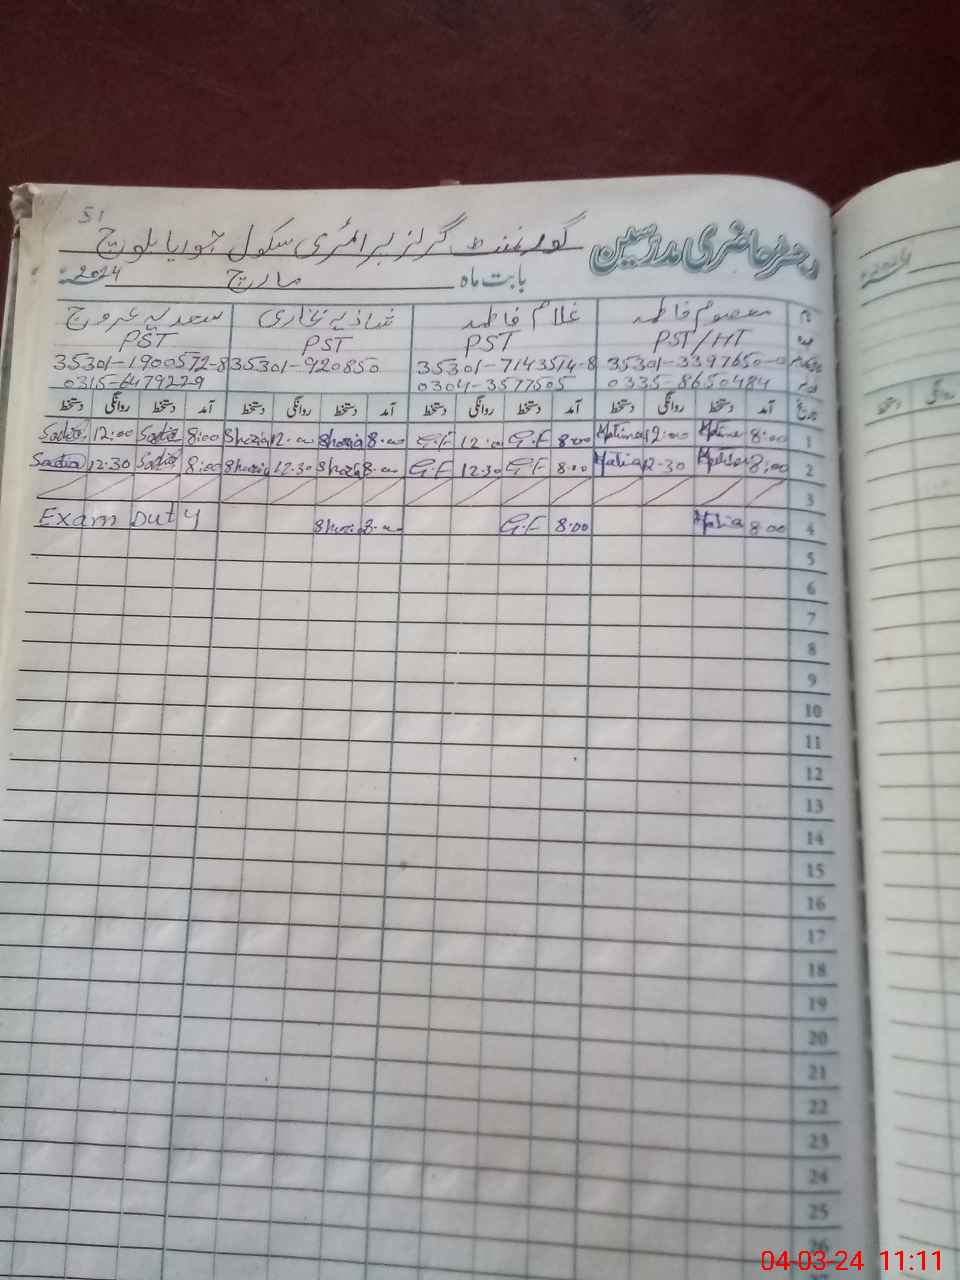 51
رجسٹر حاضری مدرسین
گورنمنٹ گرلز پرائمری سکول جوریا بلوچ
بابت ماہ مارچ 2024ء
نام معصوم فاطمہ غلام فاطمہ شازیہ بخاری سعدیہ عروج
PST/HT PST PST PST
35301-3397650-0 35301-7143514-8 35301-920850 35301-1900572-8
0335-8650484 0304-3577505 0315-6479229
تاریخ آمد دستخط روانگی دستخط آمد دستخط روانگی دستخط آمد دستخط روانگی دستخط آمد دستخط روانگی دستخط
1 8:00 12:00 8:00 G.F 12:00 G.F 8:00 Shazia 12:00 Shazia 8:00 Sadia 12:00 Sadia
2 8:00 12:30 8:00 G.F 12:30 G.F 8:00 Shazia 12:30 Shazia 8:00 Sadia 12:30 Sadia
3
4 8:00 8:00 G.F 8:00 Shazia Exam Duty
5
6
7
8
9
10
11
12
13
14
15
16
17
18
19
20
21
22
23
24
25
26
04-03-24 11:11